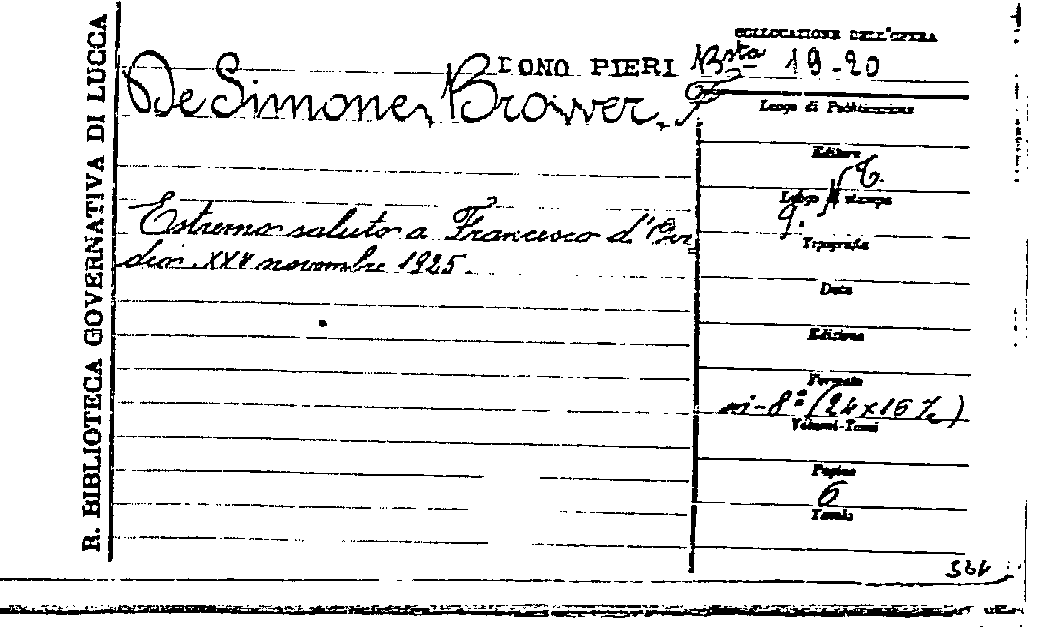 R. BIBLIOTECA GOVERNATIVA DI LUCCA
COLLOCAZIONE DELL'OPERA
DONO PIERI Bsta 19-20
De Simone, Brower, F.
Luogo di Pubblicazione
Editore
Luogo di stampa
Estremo saluto a Francesco d'
Tipografia
dio. XXV novembre 1925.
Data
Edizione
Formato
in-8° (24x16½)
Volumi-Tomi
Pagine
6
Tavole